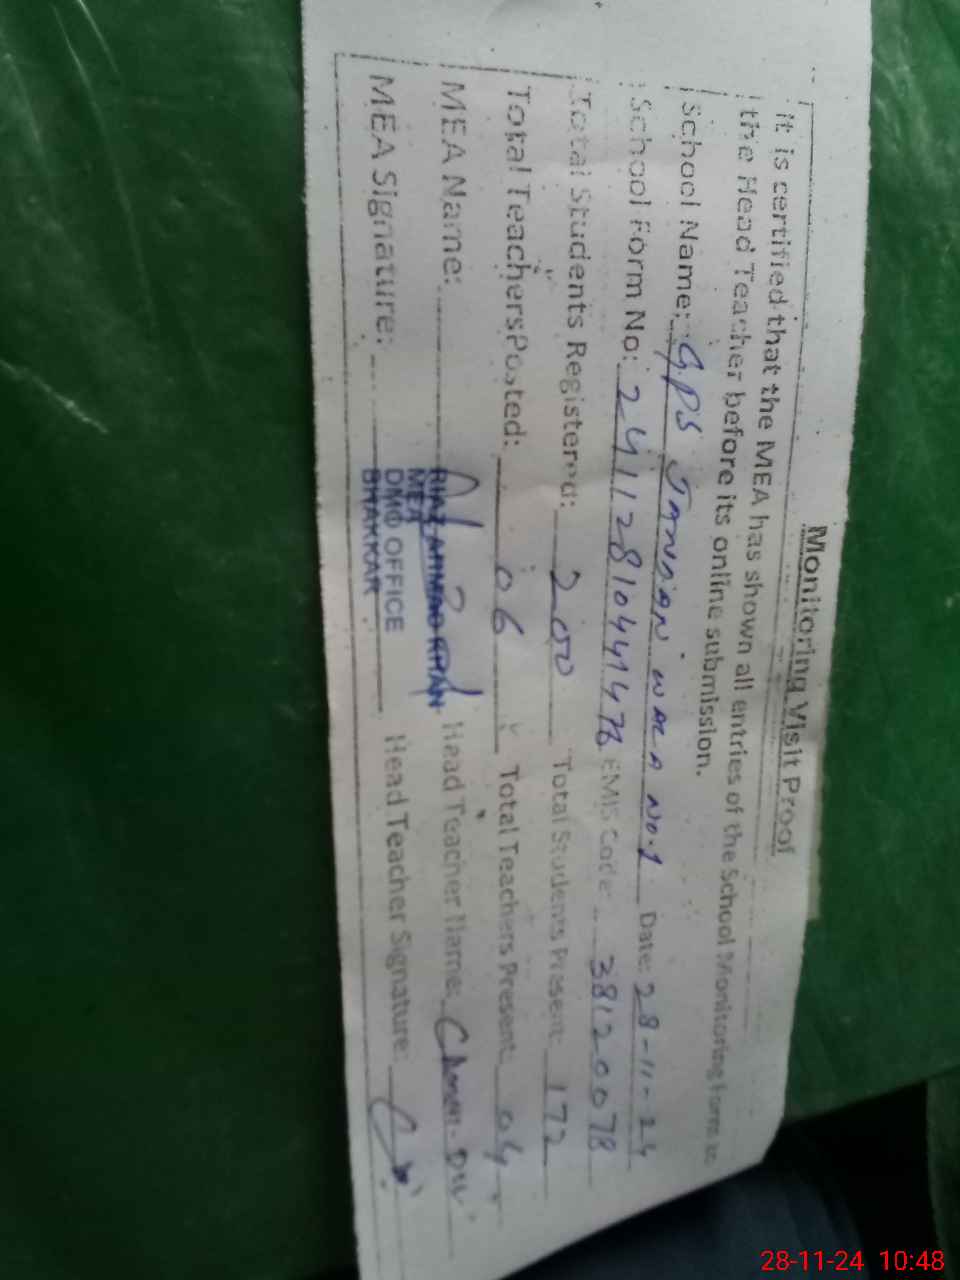 Monitoring Visit Proof
it is certified that the MEA has shown all entries of the School Monitoring Form to
the Head Teacher before its online submission.
School Name: GPS JANDAN WALA NO.1 Date: 28-11-24
School Form No: EMIS Code: 38120078
Total Students Registered: 200 Total Students Present: 172
Total Teachers Posted: 06 Total Teachers Present: 04
MEA Name: RIAZ AHMAD KHAN Head Teacher Name:
MEA
MEA Signature: DMO OFFICE Head Teacher Signature:
BHAKKAR
28-11-24 10:48